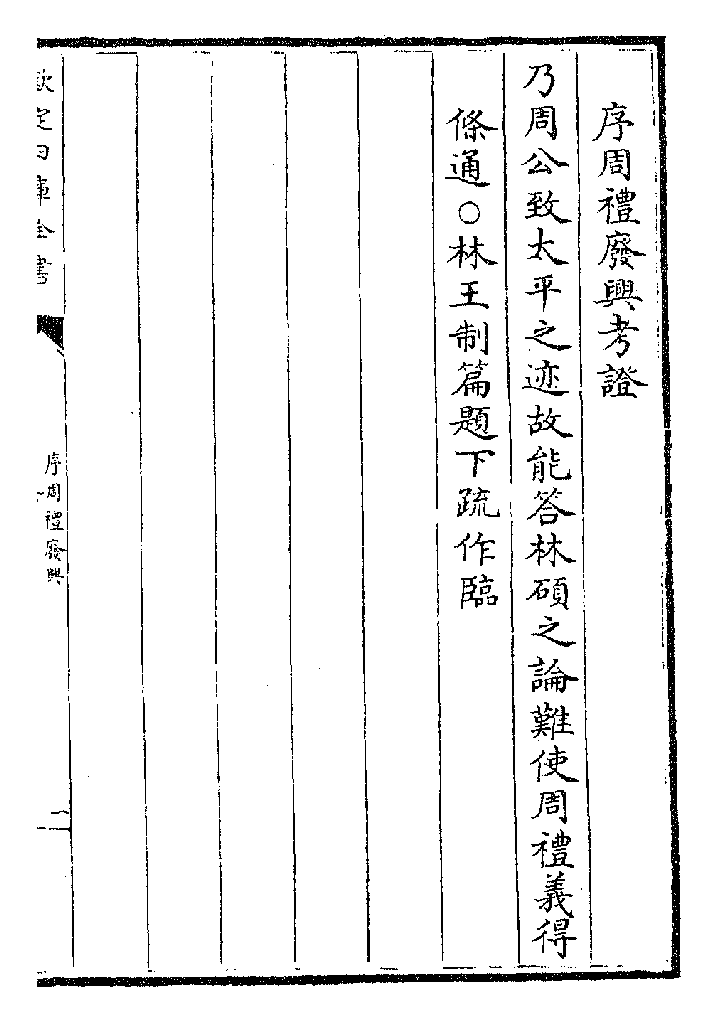 序周禮廢興考證
乃周公致太平之迹故能答林碩之論難使周禮義得
條通○林王制篇題下疏作臨
欽定四庫全書
序周禮廢興
一